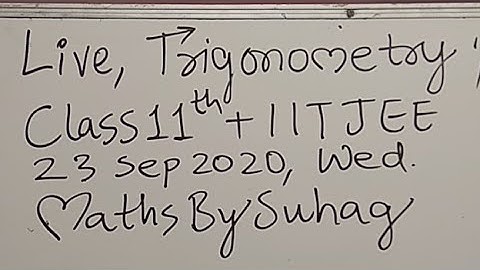 Live, Trigonometry
Class 11th + IIT JEE
23 Sep 2020, Wed.
Maths By Suhag